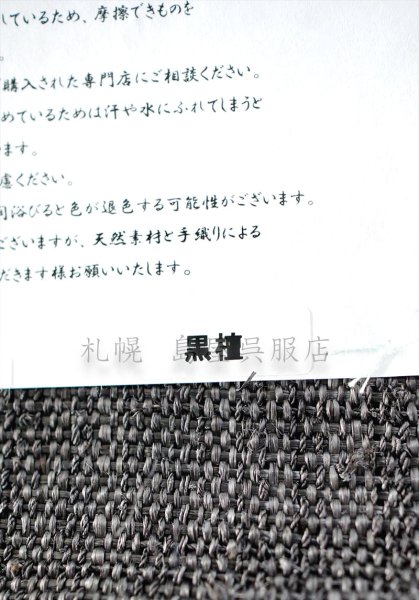 しているため、摩擦できものを
。
購入された専門店にご相談ください。
めているためは汗や水にふれてしまうと
ます。
慮ください。
間浴びると色が退色する可能性がございます。
ございますが、天然素材と手織りによる
だきます様お願いいたします。
黒檀
札幌 島田呉服店